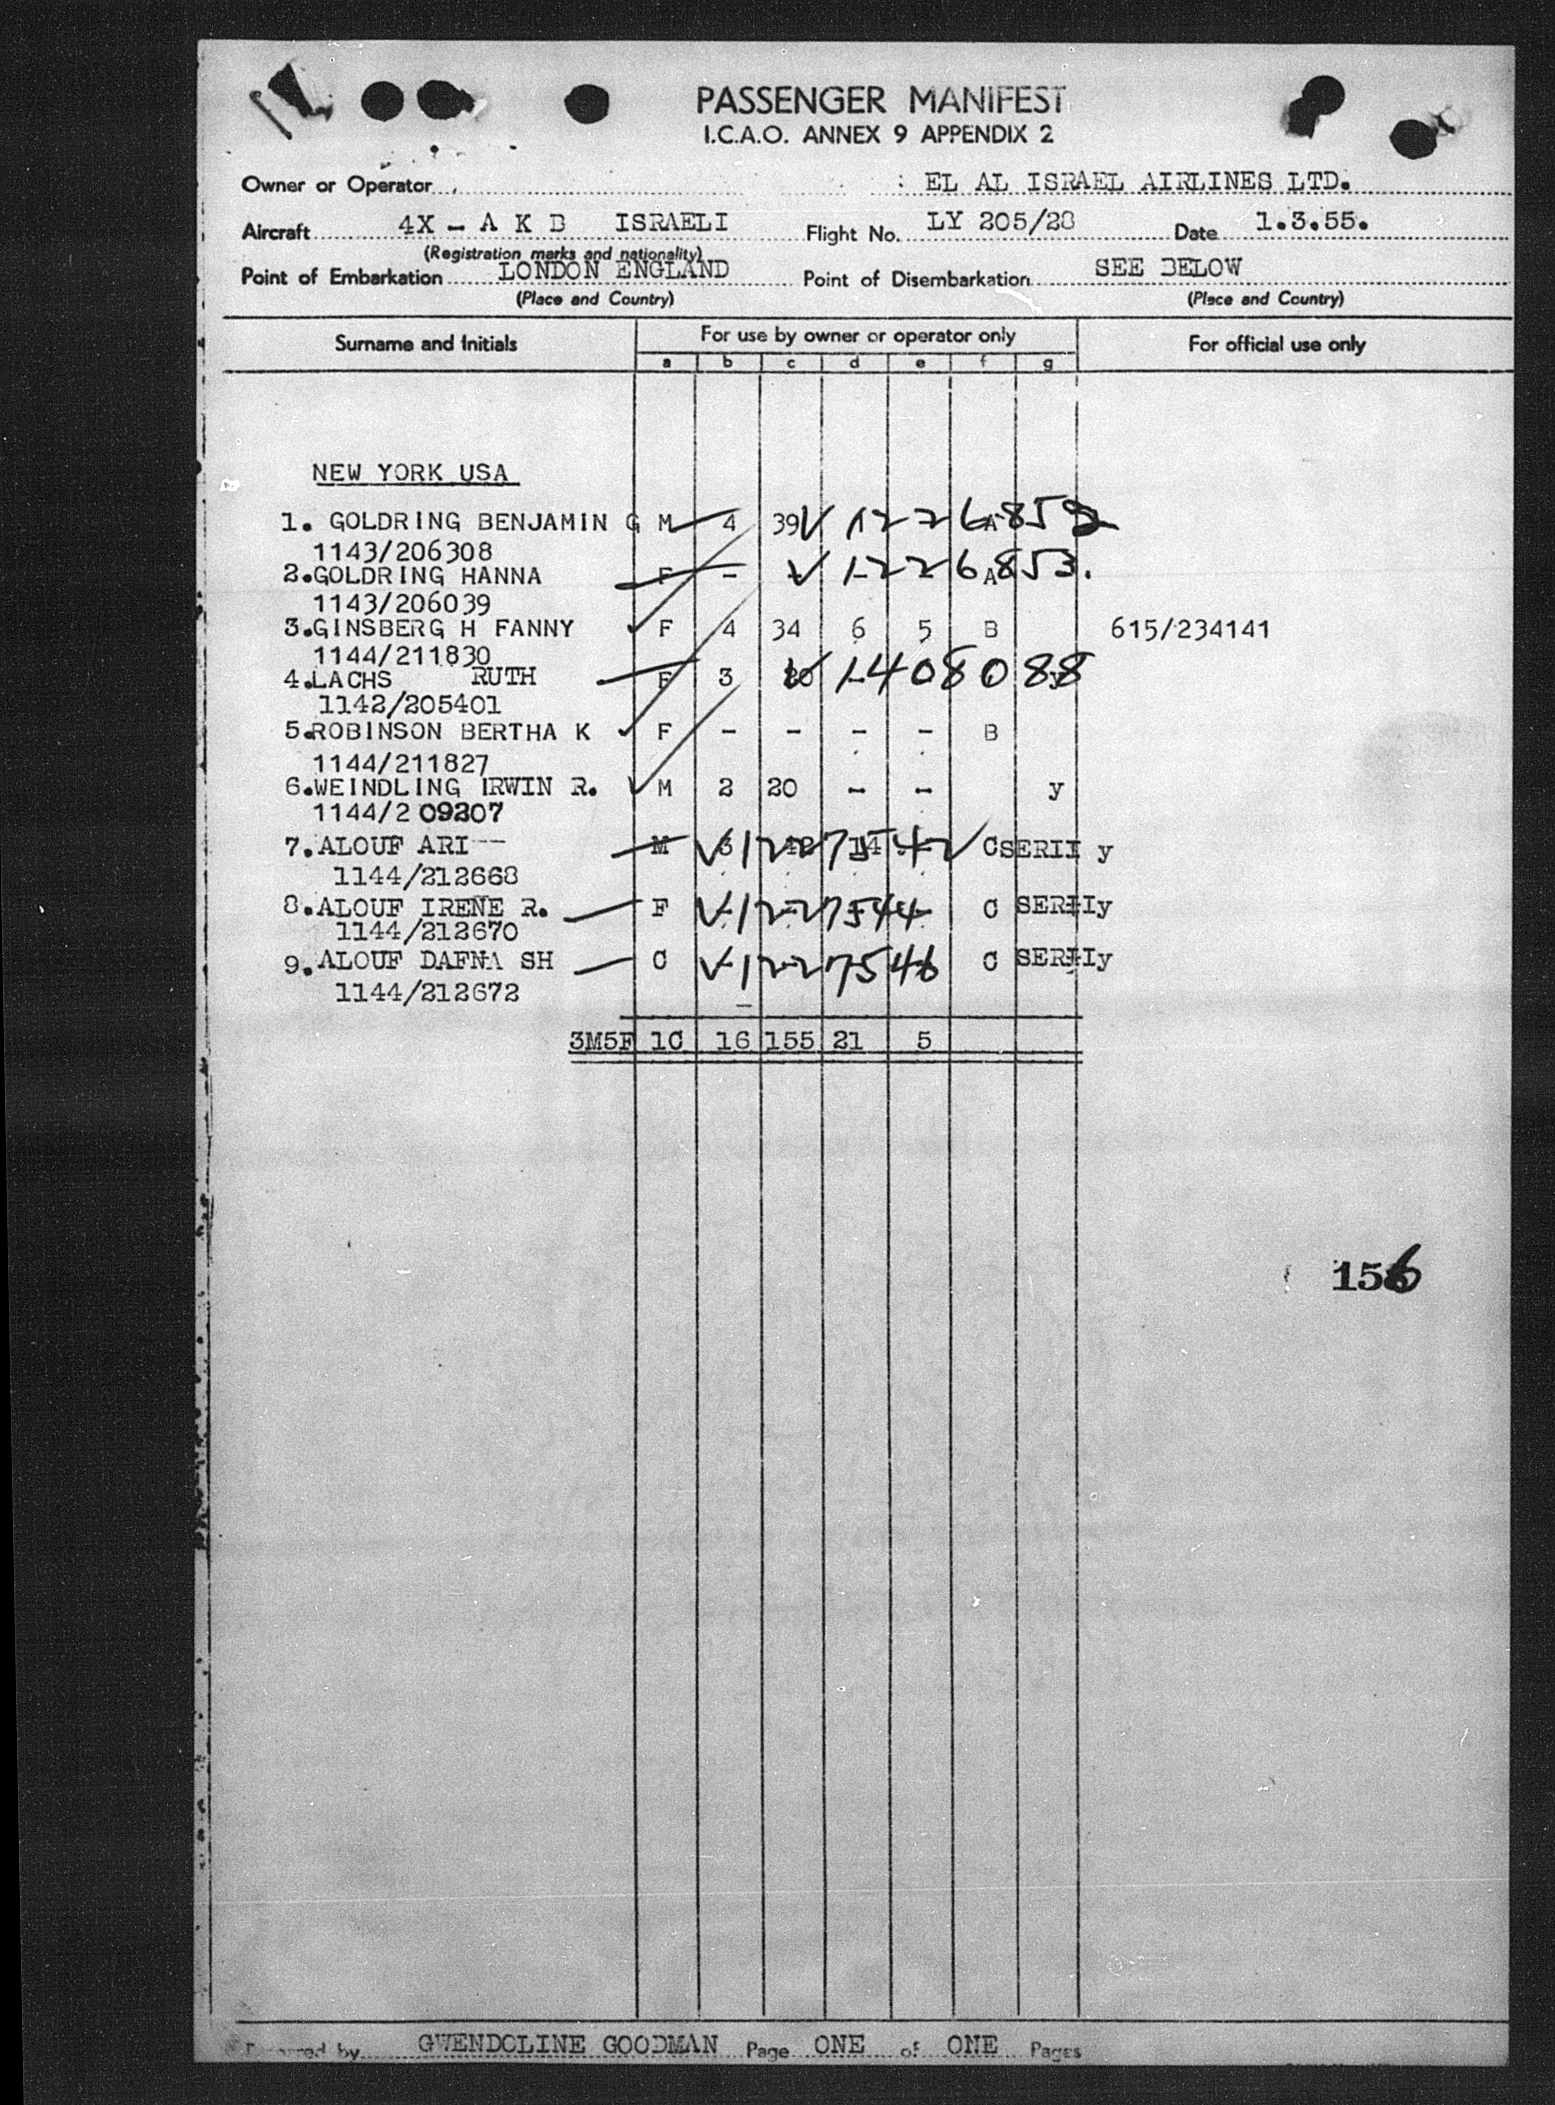 PASSENGER MANIFEST
I.C.A.O. ANNEX 9 APPENDIX 2
Owner or Operator : EL AL ISRAEL AIRLINES LTD.
Aircraft 4X - A K B ISRAELI Flight No. LY 205/28 Date 1.3.55.
(Registration marks and nationality)
Point of Embarkation LONDON ENGLAND Point of Disembarkation SEE BELOW
(Place and Country) (Place and Country)
Surname and Initials For use by owner or operator only For official use only
a b c d e f g
NEW YORK USA
1. GOLDRING BENJAMIN G M 4 39 A
1143/206308
2.GOLDRING HANNA F - - - - A 1226853.
1143/206039
3.GINSBERG H FANNY F 4 34 6 5 B 615/234141
1144/211830
4.LACHS RUTH F 3 1408088 y
1142/205401
5.ROBINSON BERTHA K F - - - - B
1144/211827
6.WEINDLING IRWIN R. M 2 20 - - y
1144/209207
7.ALOUF ARI M 3 42 14 C SERII y
1144/212668
8.ALOUF IRENE R. F 1227544 C SERIIy
1144/212670
9.ALOUF DAFNA SH C 1227546 C SERIIy
1144/212672
3M5F 1C 16 155 21 5
156
by GWENDOLINE GOODMAN Page ONE of ONE Pages